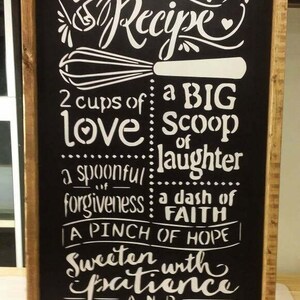 Recipe
2 cups of
love
a BIG
Scoop
of
laughter
a spoonful
of
forgiveness
a dash of
FAITH
A PINCH OF HOPE
Sweeten with
patience
AND